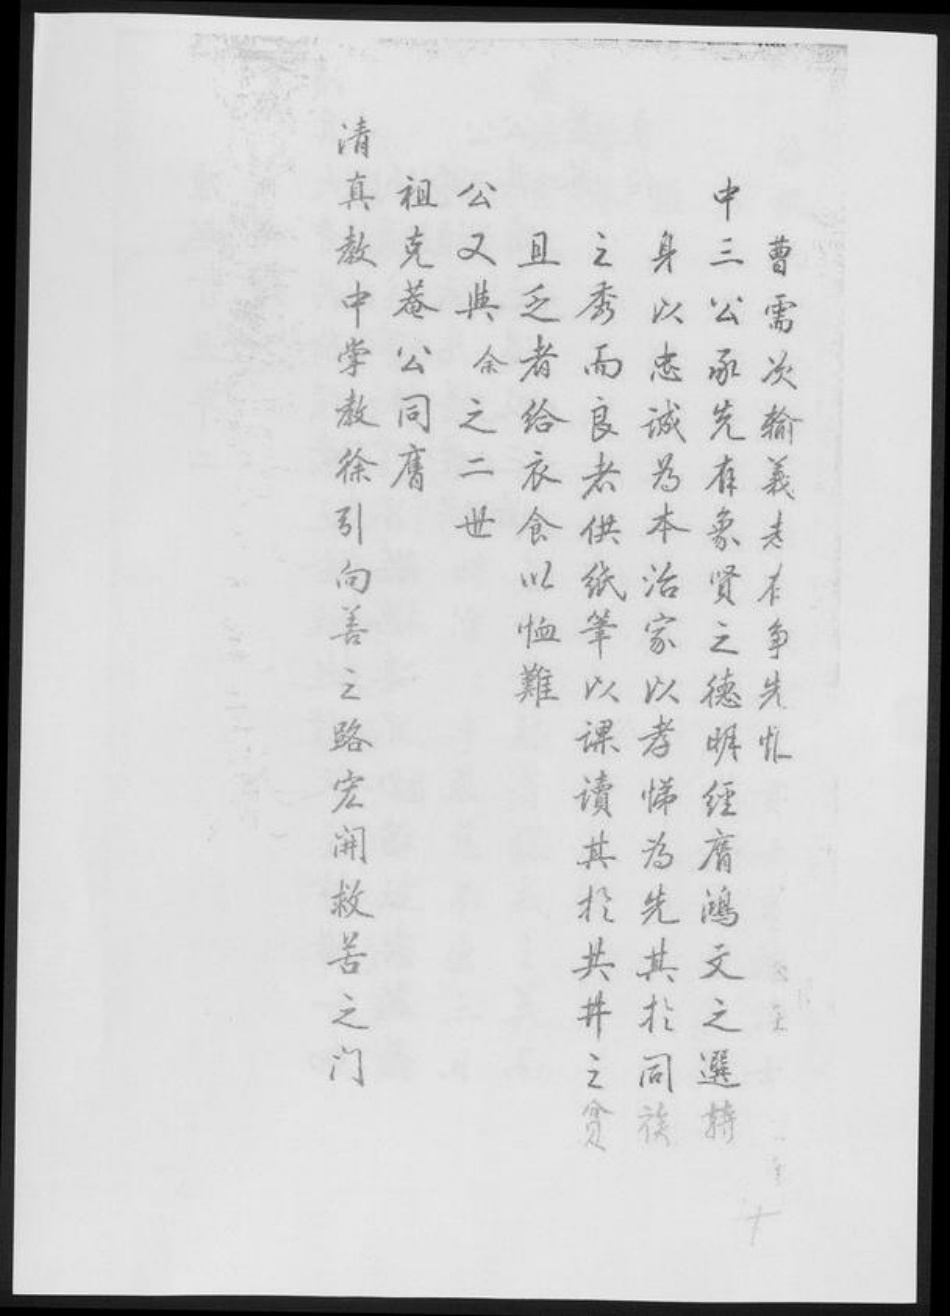 曹需次輸義者有爭先恐
中三公承先有象賢之德明經膺鴻文之選持
身以忠誠為本治家以孝悌為先其於同族
之秀而良者供紙筆以課讀其於共井之貧
且乏者給衣食以恤難
公又與余之二世
祖克菴公同膺
清真教中掌教徐引向善之路宏開救苦之门